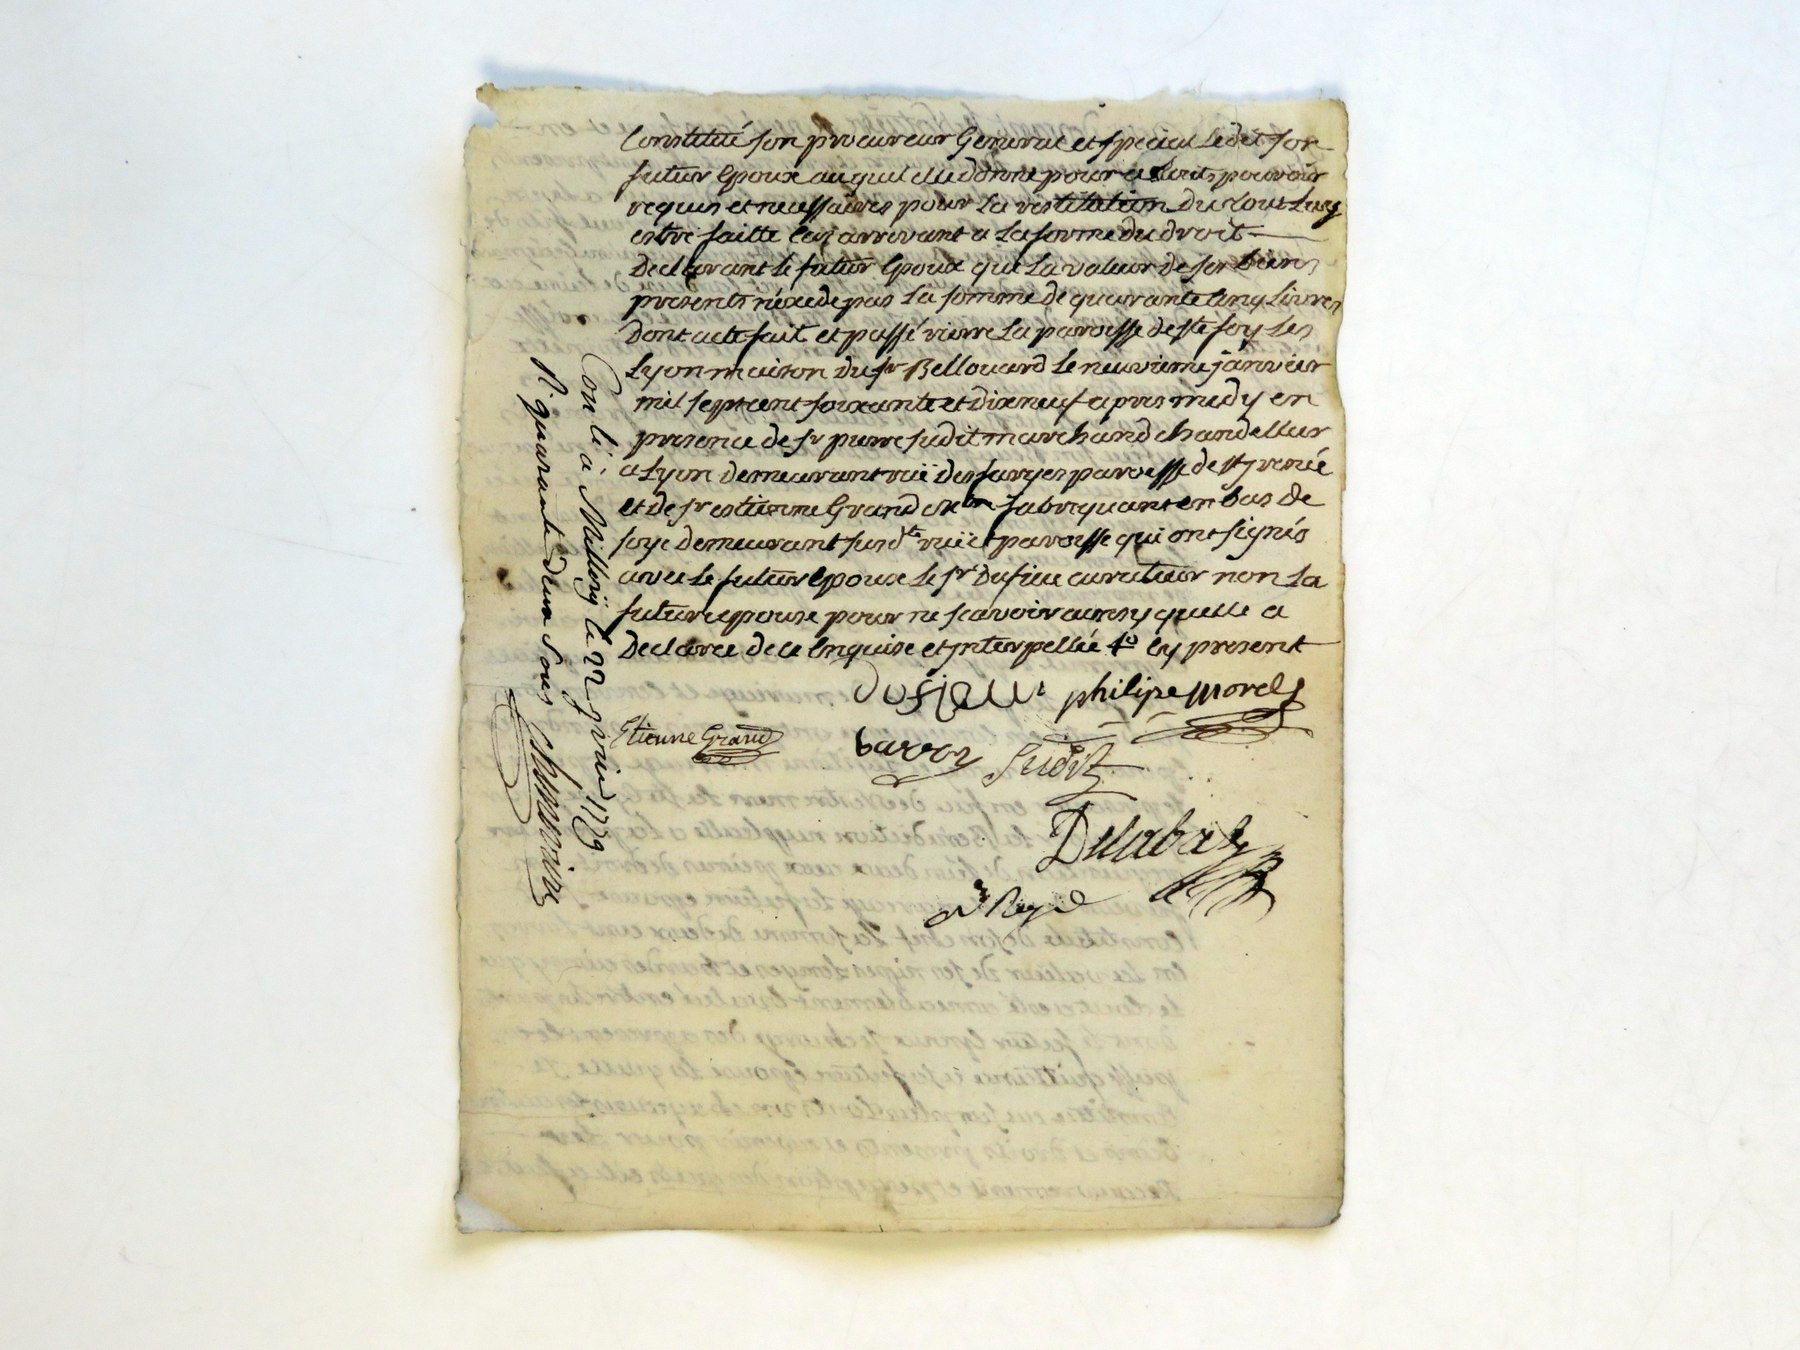 Constitué son procureur General et special ledit son
futur Epoux auquel elle donne pour ce touts pouvoirs
requis et necessaires pour La restitution Du tout Luy
estre faitte Cas arrivant a La forme du droit
Declarant le futur Epoux que La valeur de ses biens
presents n'éxede pas La somme de quarante Cinq Livres
Dont acte fait et passé riere La paroisse de ste foy Les
Lyon maison du sr Bellouard Le neuvieme janvier
mil sept cent soixante et Dix neuf apres midy en
presence de sr pierre Judit marchand chandellier
a Lyon demeurant ruë des farges paroisse de st jrenée
et de sr estienne Grand me fabriquant en bas de
soye Demeurant susdte ruë et paroisse qui ont signés
avec Le futur Epoux Le sr Dufieu curateur non La
future epouse pour ne scavoir ainsy quelle a
Declaree de ce Enquise et jnterpellée Cy present
Dufieu philipe morel
Etienne Grand barroy Judit
Delabal
Con lé à Millery le 22 janvier 1779
R. quarante deux sous